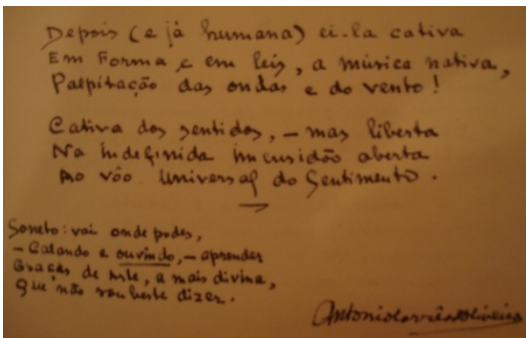 Depois (e já humana) ei-la cativa
Em Forma e em leis, a música nativa,
Palpitação das ondas e do vento!
Cativa dos sentidos, – mas liberta
Na indefinida imensidão aberta
Ao vôo universal do Sentimento.
Soneto: vai onde podes,
– Calando e ouvindo, – aprender
Graças de Arte, a mais divina,
Que não soubeste dizer.
Antonio Corrêa d'Oliveira